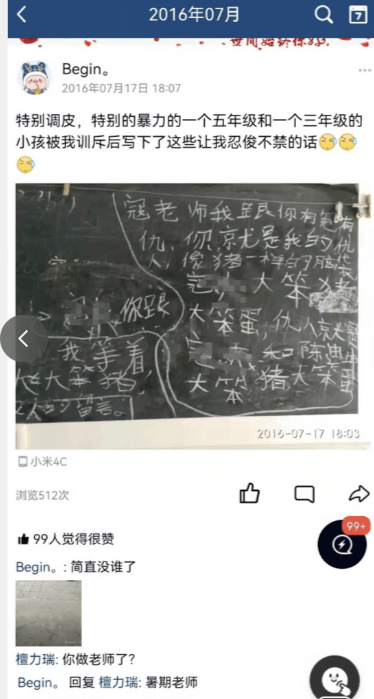 2016年07月
7
世间始终你好
Begin。
2016年07月17日 18:07
特别调皮，特别的暴力的一个五年级和一个三年级的
小孩被我训斥后写下了这些让我忍俊不禁的话
冠老师我跟你有
仇，你就是我的仇
人，像猪一样的脑袋
大笨猪
你跟
大笨蛋，仇人
我等着
和陈
大笨猪，
大笨猪，大笨蛋
的留言。
2016-07-17 18:03
小米4C
浏览512次
99+
99人觉得很赞
Begin。: 简直没谁了
檀力瑞: 你做老师了？
Begin。 回复 檀力瑞: 暑期老师